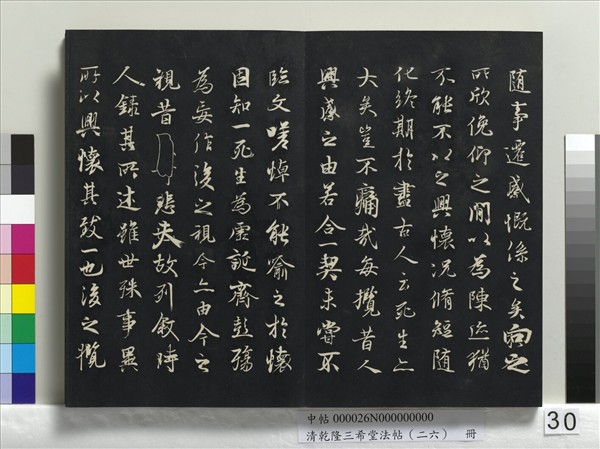 隨事遷感慨係之矣向之
所欣俛仰之間以為陳迹猶
不能不以之興懷況脩短隨
化終期於盡古人云死生亦
大矣豈不痛哉每攬昔人
興感之由若合一契未嘗不
臨文嗟悼不能喻之於懷
固知一死生為虛誕齊彭殤
為妄作後之視今亦由今之
視昔悲夫故列敘時
人錄其所述雖世殊事異
所以興懷其致一也後之攬
中帖 000026N000000000
清乾隆三希堂法帖(二六) 冊
30